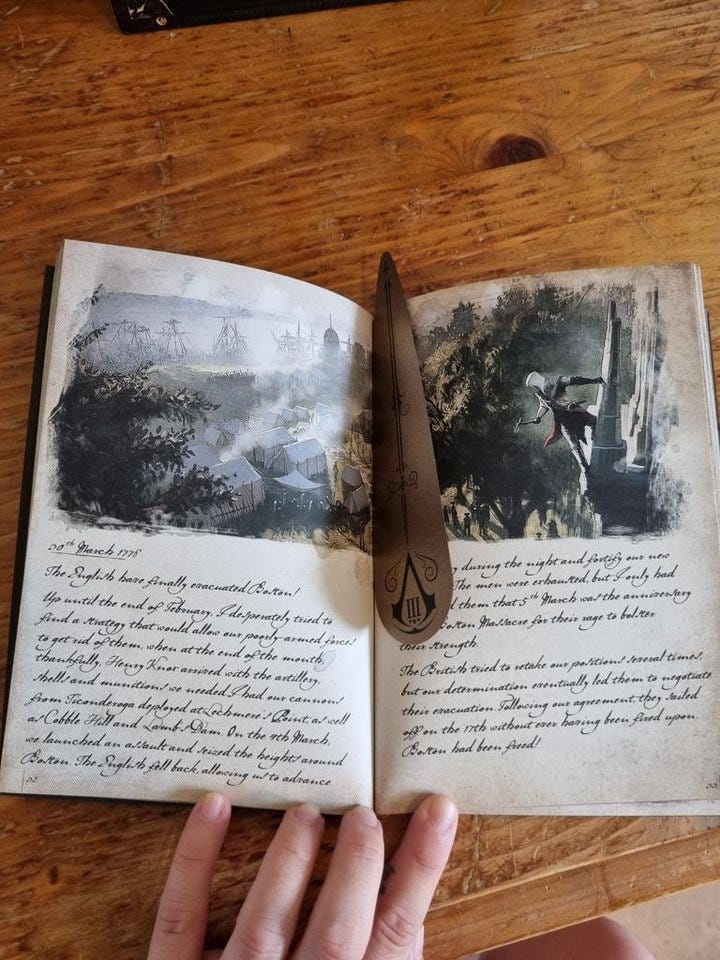 30th March 1776
The English have finally evacuated Boston!
Up until the end of February, I desperately tried to
find a strategy that would allow our poorly-armed forces
to get rid of them, when at the end of the month,
thankfully, Henry Knox arrived with the artillery,
shells and munitions we needed. I had our cannons
from Ticonderoga deployed at Lechmere's Point as well
as Cobble Hill and Lamb's Dam. On the 4th March,
we launched an assault and seized the heights around
Boston. The English fell back, allowing us to advance
during the night and fortify our new
The men were exhausted, but I only had
them that 5th March was the anniversary
Boston Massacre for their rage to bolster
their strength.
The British tried to retake our positions several times,
but our determination eventually led them to negotiate
their evacuation. Following our agreement, they sailed
off on the 17th without ever having been fired upon.
Boston had been freed!
III